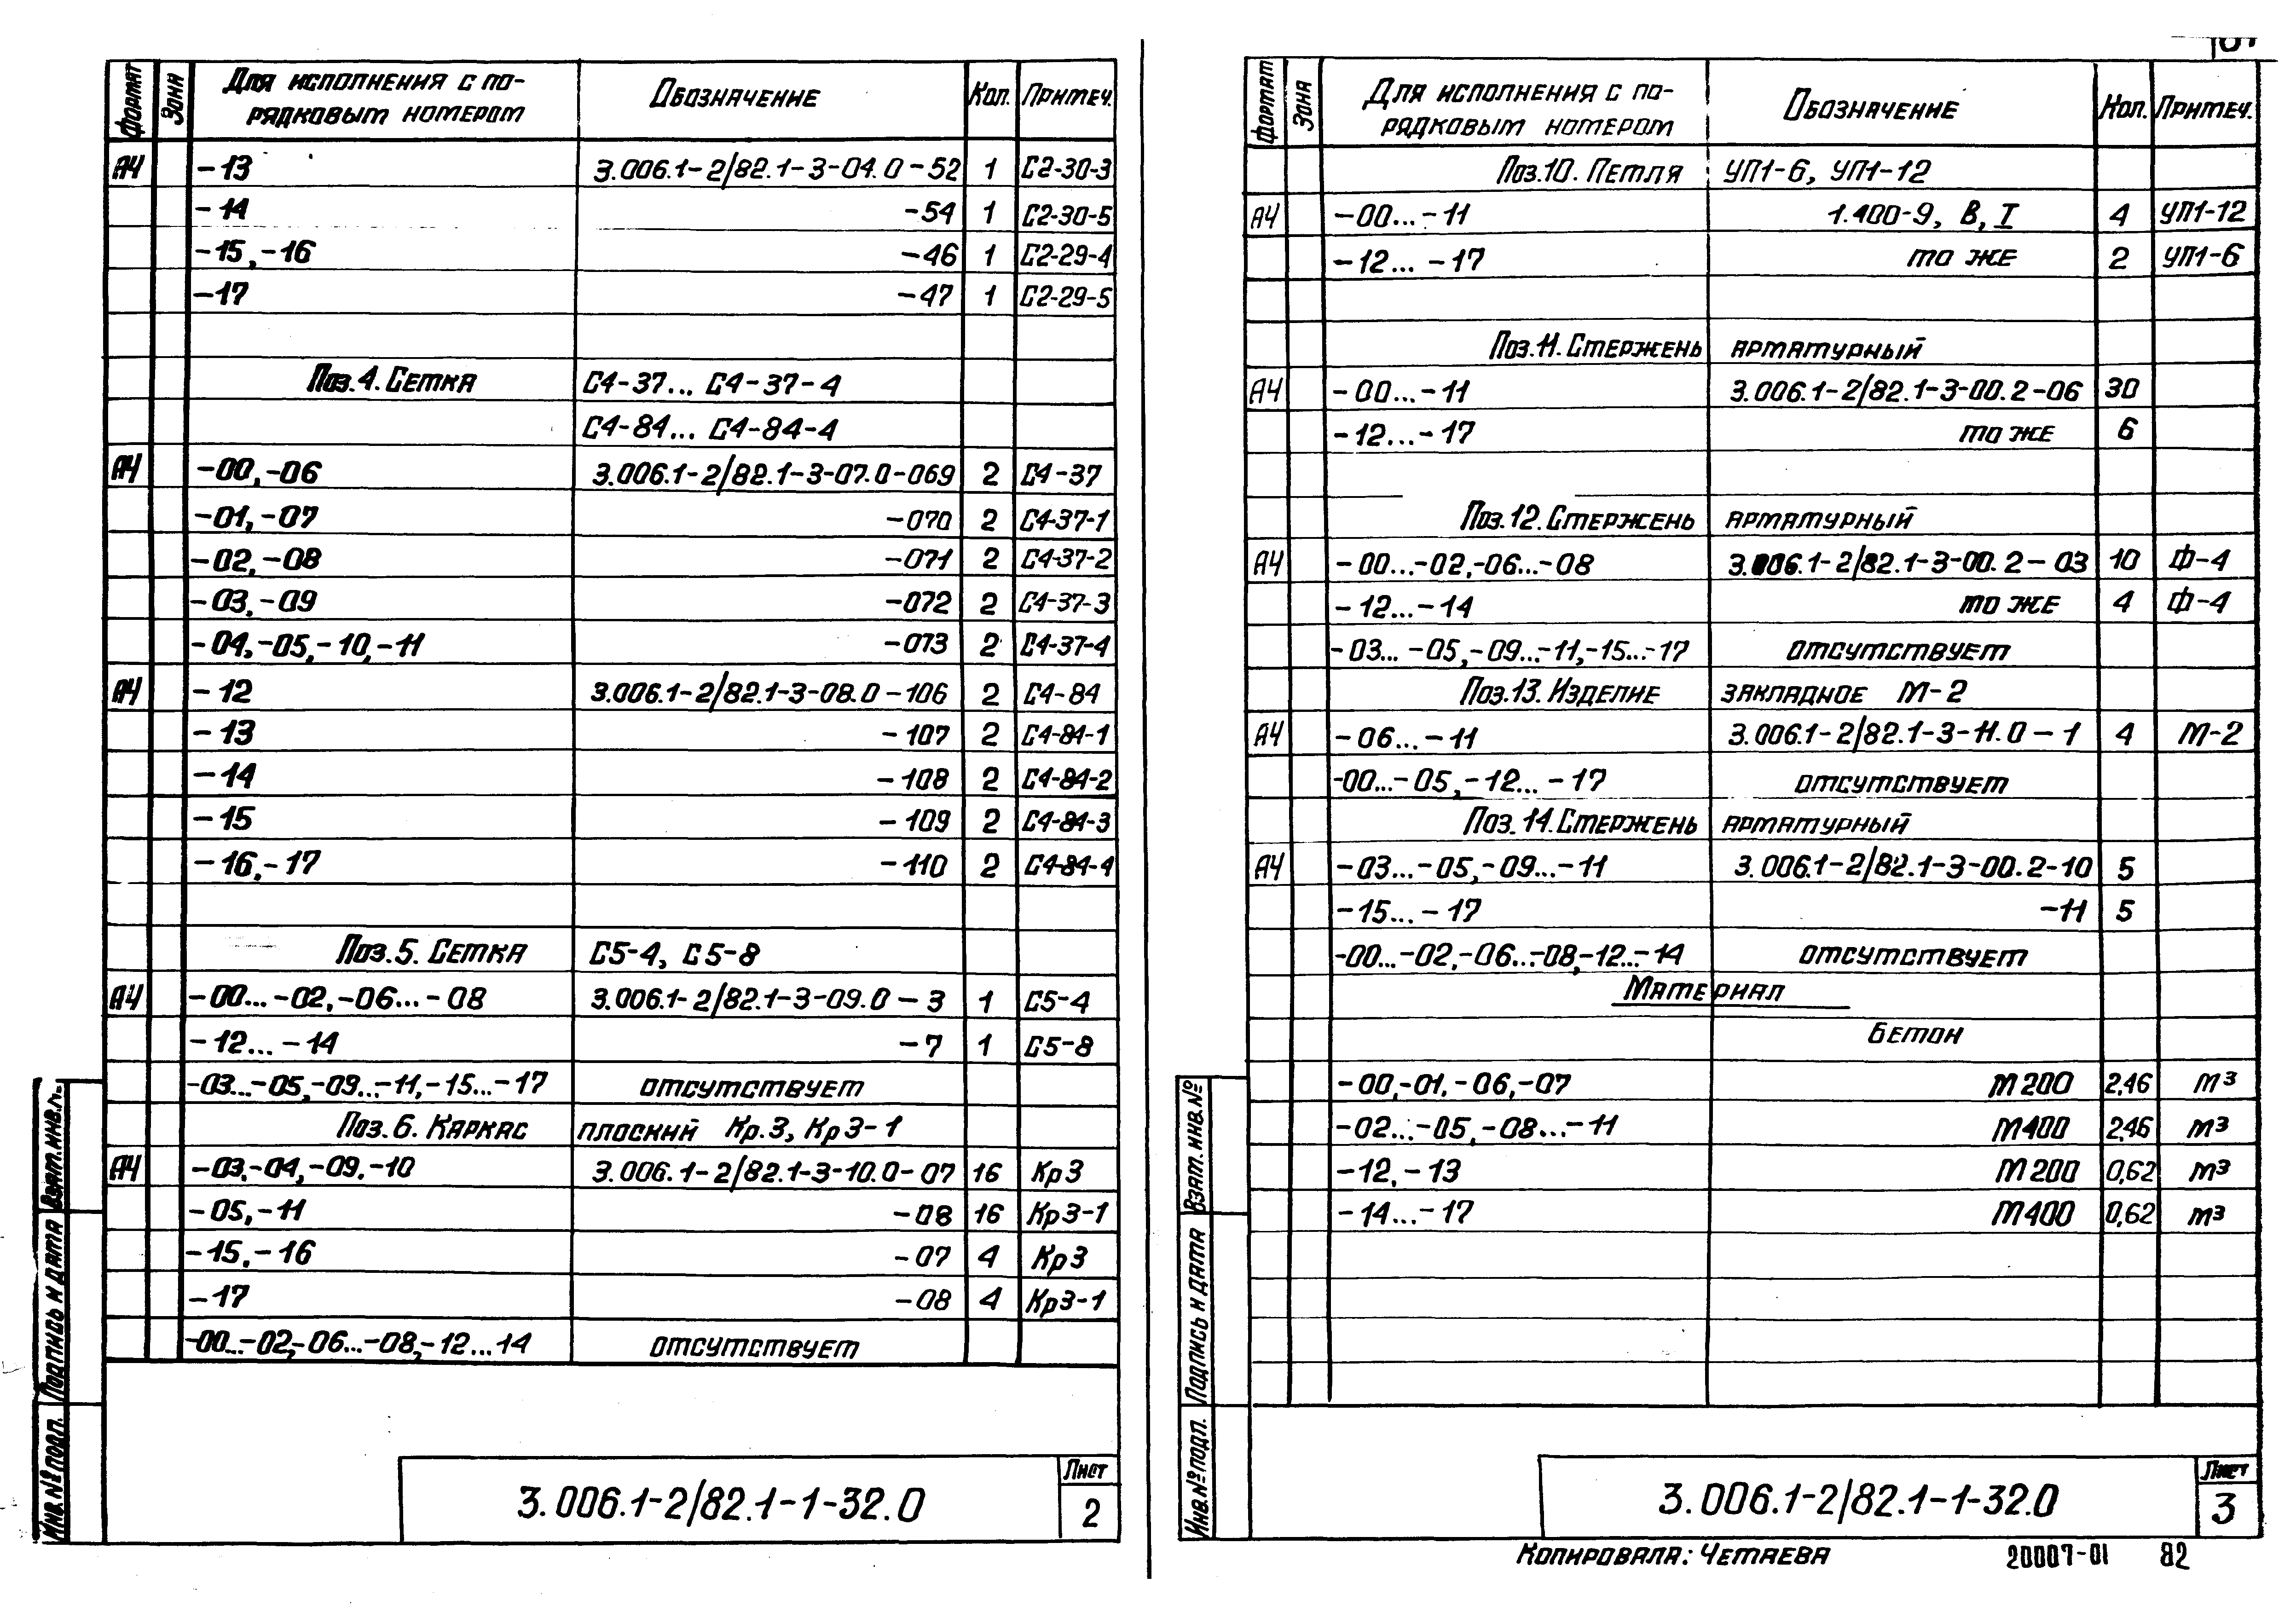 Формат Зона Для исполнения с по- Обозначение Кол. Примеч.
рядковым номером
А4 -13 3.006.1-2/82.1-3-04.0-52 1 С2-30-3
-14 -54 1 С2-30-5
-15,-16 -46 1 С2-29-4
-17 -47 1 С2-29-5
Поз.4. Сетка С4-37... С4-37-4
С4-84... С4-84-4
А4 -00,-06 3.006.1-2/82.1-3-07.0-069 2 С4-37
-01,-07 -070 2 С4-37-1
-02,-08 -071 2 С4-37-2
-03,-09 -072 2 С4-37-3
-04,-05,-10,-11 -073 2 С4-37-4
А4 -12 3.006.1-2/82.1-3-08.0-106 2 С4-84
-13 -107 2 С4-84-1
-14 -108 2 С4-84-2
-15 -109 2 С4-84-3
-16,-17 -110 2 С4-84-4
Поз.5. Сетка С5-4, С5-8
А4 -00...-02,-06...-08 3.006.1-2/82.1-3-09.0-3 1 С5-4
-12...-14 -7 1 С5-8
-03...-05,-09...-11,-15...-17 отсутствует
Поз.6. Каркас плоский Кр.3, Кр3-1
А4 -03,-04,-09,-10 3.006.1-2/82.1-3-10.0-07 16 Кр3
-05,-11 -08 16 Кр3-1
-15,-16 -07 4 Кр3
-17 -08 4 Кр3-1
-00...-02,-06...-08,-12...14 отсутствует
Взам.инв.№
Подпись и дата
Инв.№подл.
3.006.1-2/82.1-1-32.0
Лист
2
Формат Зона Для исполнения с по- Обозначение Кол. Примеч.
рядковым номером
Поз.10. Петля УП1-6, УП1-12
А4 -00...-11 1.400-9, В, I 4 УП1-12
-12...-17 то же 2 УП1-6
Поз.11. Стержень арматурный
А4 -00...-11 3.006.1-2/82.1-3-00.2-06 30
-12...-17 то же 6
Поз.12. Стержень арматурный
А4 -00...-02,-06...-08 3.006.1-2/82.1-3-00.2-03 10 Ф-4
-12...-14 то же 4 Ф-4
-03...-05,-09...-11,-15...-17 отсутствует
Поз.13. Изделие закладное М-2
А4 -06...-11 3.006.1-2/82.1-3-11.0-1 4 М-2
-00...-05,-12...-17 отсутствует
Поз.14. Стержень арматурный
А4 -03...-05,-09...-11 3.006.1-2/82.1-3-00.2-10 5
-15...-17 -11 5
-00...-02,-06...-08,-12...-14 отсутствует
Материал
Бетон
-00,-01,-06,-07 М200 2,46 м³
-02...-05,-08...-11 М400 2,46 м³
-12,-13 М200 0,62 м³
-14...-17 М400 0,62 м³
Взам.инв.№
Подпись и дата
Инв.№подл.
3.006.1-2/82.1-1-32.0
Лист
3
Копировала: Четаева 20007-01 82